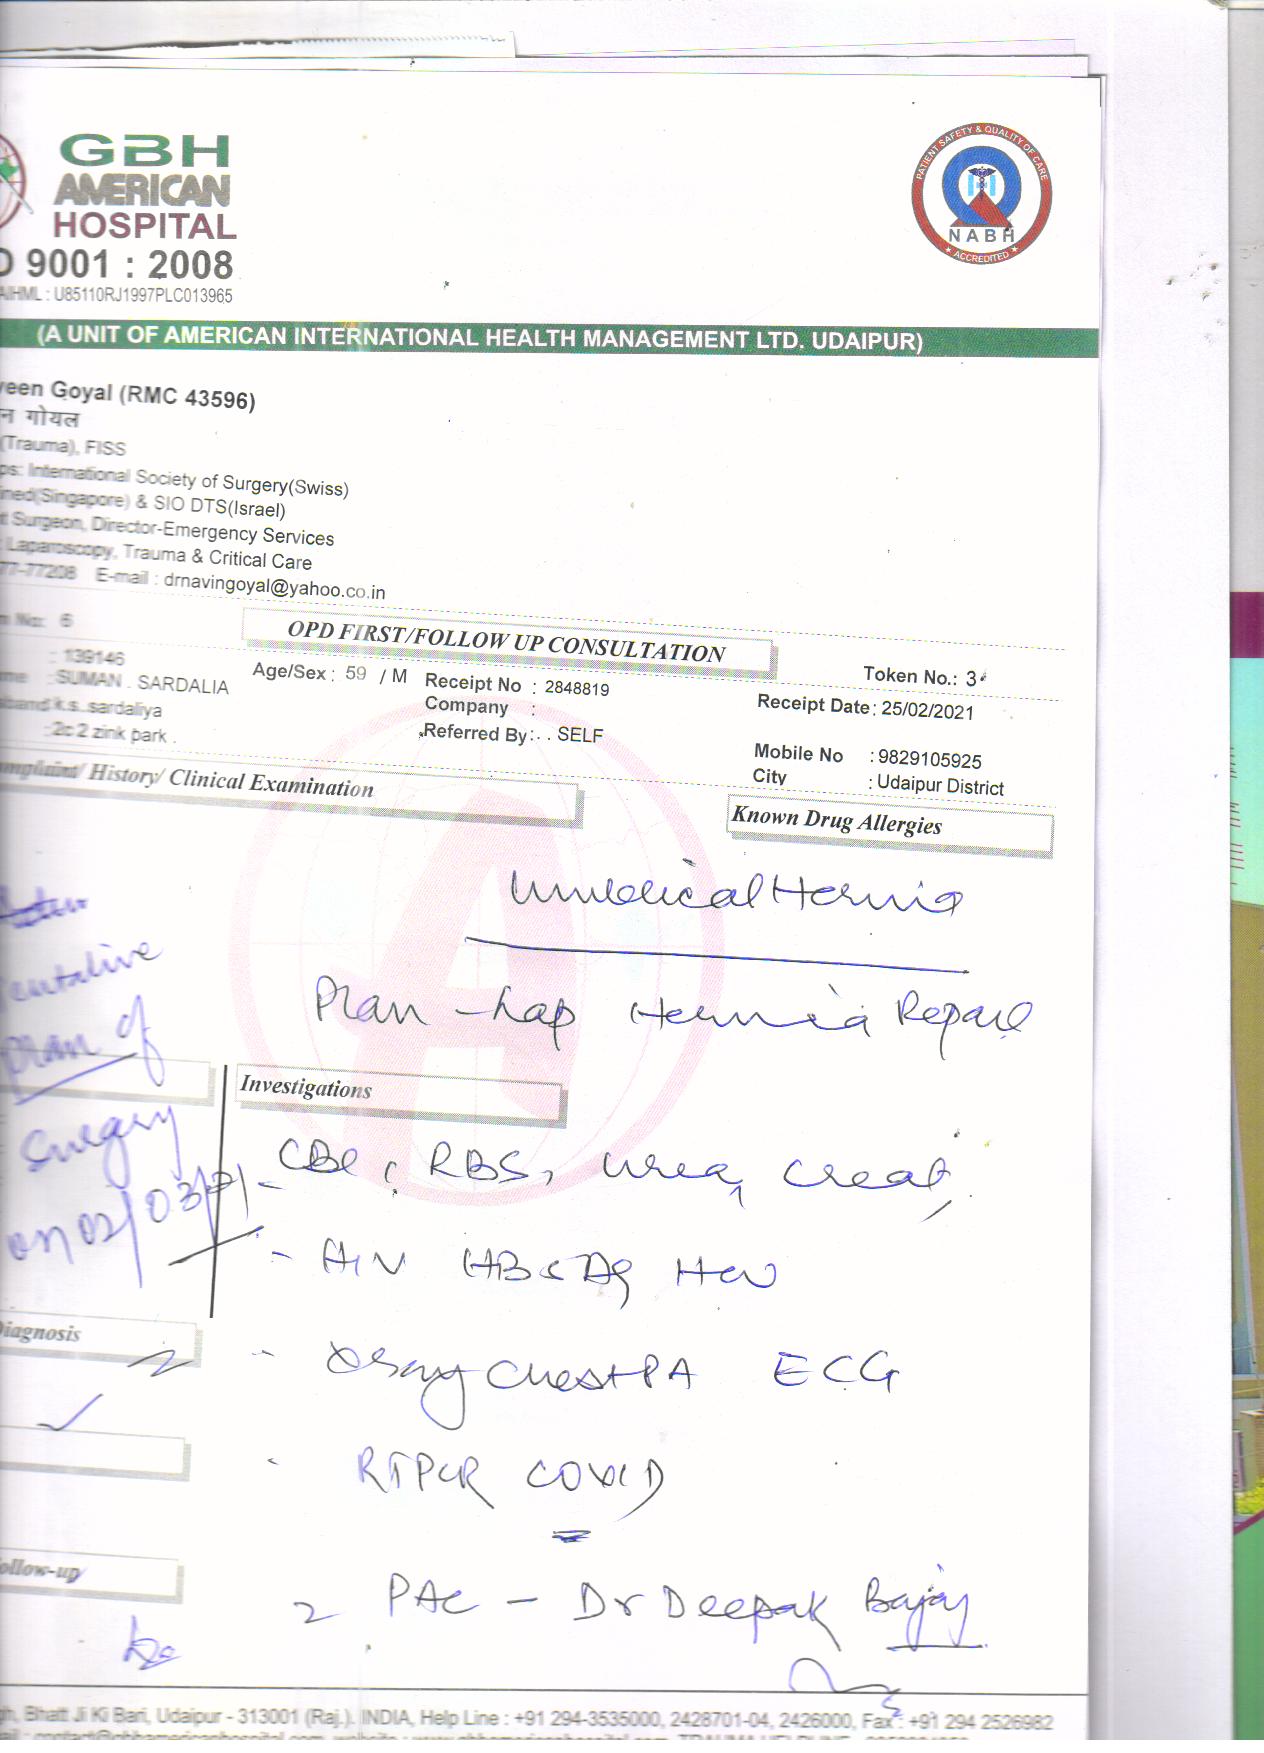 GBH
AMERICAN
HOSPITAL
9001 : 2008
AIHML : U85110RJ1997PLC013965
PATIENT SAFETY & QUALITY OF CARE
NABH
ACCREDITED
(A UNIT OF AMERICAN INTERNATIONAL HEALTH MANAGEMENT LTD. UDAIPUR)
veen Goyal (RMC 43596)
न गोयल
(Trauma), FISS
ps: International Society of Surgery(Swiss)
ined(Singapore) & SIO DTS(Israel)
t Surgeon, Director-Emergency Services
: Laparoscopy, Trauma & Critical Care
77-77208 E-mail : drnavingoyal@yahoo.co.in
No: 6
OPD FIRST/FOLLOW UP CONSULTATION
Token No.: 3
: 139146
Age/Sex : 59 / M
Receipt No : 2848819
Receipt Date : 25/02/2021
me : SUMAN . SARDALIA
Company :
sband k.s. sardaliya
Referred By : . . SELF
Mobile No : 9829105925
: 2c 2 zink park .
City : Udaipur District
omplaint/ History/ Clinical Examination
Known Drug Allergies
Umbilical Hernia
Plan - Lap Hernia Repair
Tentative
plan of
Surgery
on 02/03/21
Investigations
CBC, RBS, Urea, Creat,
- HIV HBsAg HCV
Diagnosis
- Xray Chest PA ECG
- RTPCR COVID
ollow-up
PAC - Dr Deepak Bajaj
gh, Bhatt Ji Ki Bari, Udaipur - 313001 (Raj.). INDIA, Help Line : +91 294-3535000, 2428701-04, 2426000, Fax : +91 294 2526982